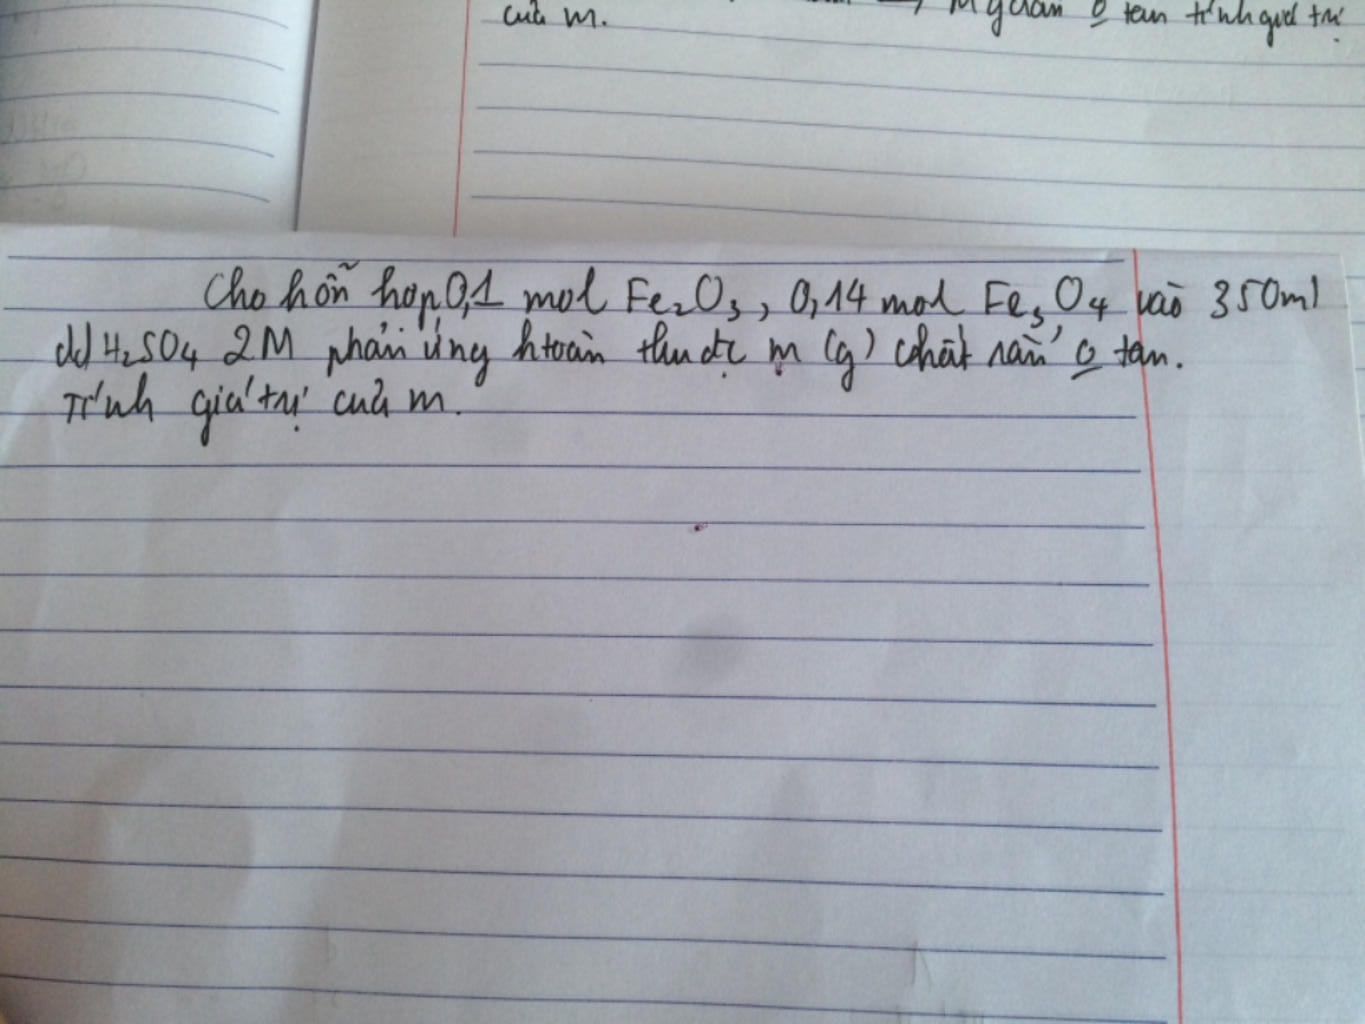 M quan o tan tính giá trị
của m.
Cho hỗn hợp 0,1 mol Fe₂O₃, 0,14 mol Fe₃O₄ vào 350ml
dd H₂SO₄ 2M phản ứng htoàn thu đc m (g) chất rắn o tan.
Tính giá trị của m.